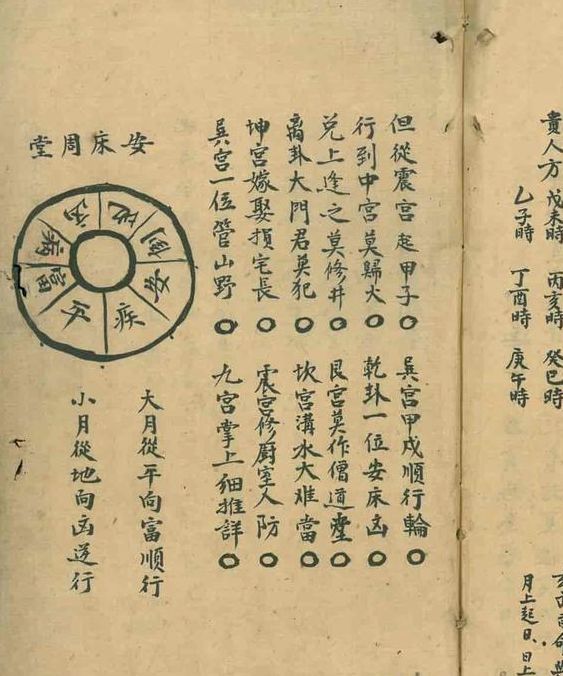 貴人方 戊未時 丙亥時 癸巳時
乙子時 丁酉時 庚午時
月上起日、日上
但從震宮起甲子○巽宮甲戌順行輪○
行到中宮莫歸火○乾卦一位安床凶○
兌上逢之莫修井○艮宮莫作僧道○
离卦大門君莫犯○坎宮溝水大难當○
坤宮嫁娶損宅長○震宮修厨室人防○
巽宮一位管山野○九宮掌上細推詳○
安床周堂
平
富
病
凶
地
安
疾
大月從平向富順行
小月從地向凶逆行